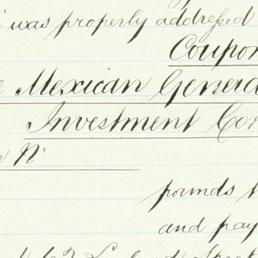 was properly addressed
Coupon
Mexican General
Investment Co
N
pounds
and pay